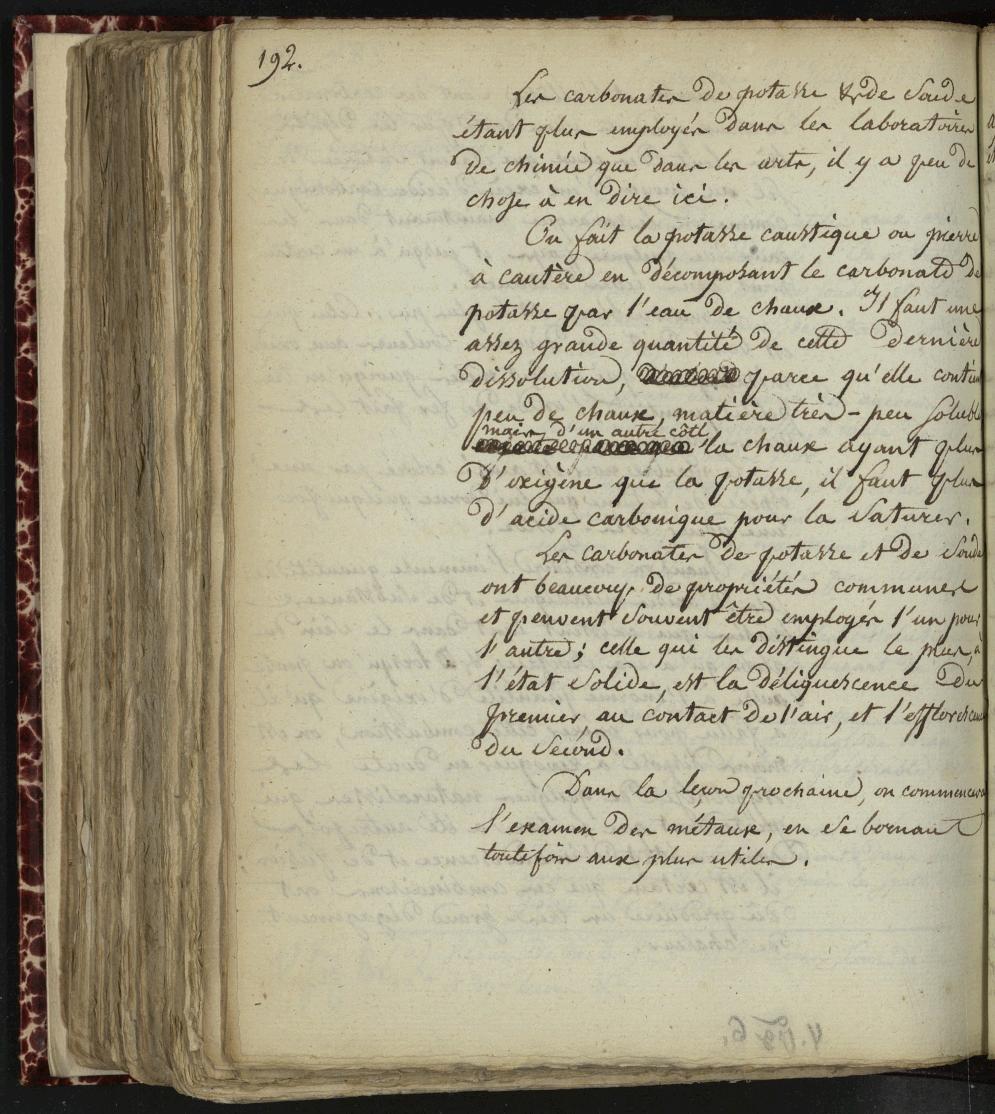 192.
Les carbonates de potasse & de soude
étant plus employés dans les laboratoires
de chimie que dans les arts, il y a peu de
chose à en dire ici.
On fait la potasse caustique ou pierre
à cautère en décomposant le carbonate de
potasse par l'eau de chaux. Il faut une
assez grande quantité de cette dernière
dissolution, parce qu'elle contient
peu de chaux, matière très-peu soluble
mais, d'un autre côté,
la chaux ayant plus
d'oxigène que la potasse, il faut plus
d'acide carbonique pour la saturer.
Les carbonates de potasse et de soude
ont beaucoup de propriétés communes
et peuvent souvent être employés l'un pour
l'autre; celle qui les distingue le plus, à
l'état solide, est la déliquescence du
premier, au contact de l'air, et l'efflorescence
du second.
Dans la leçon prochaine, on commencera
l'examen des métaux, en se bornant
toutefois aux plus utiles.